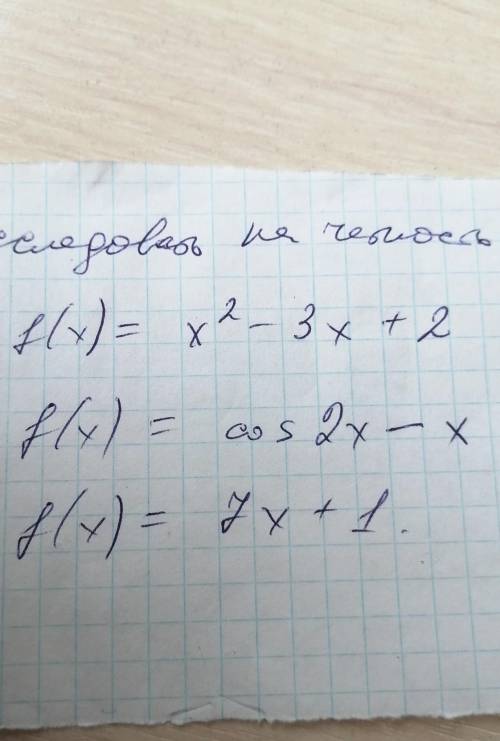 сследовать на четность
f(x) = x² - 3x + 2
f(x) = cos 2x - x
f(x) = 7x + 1.